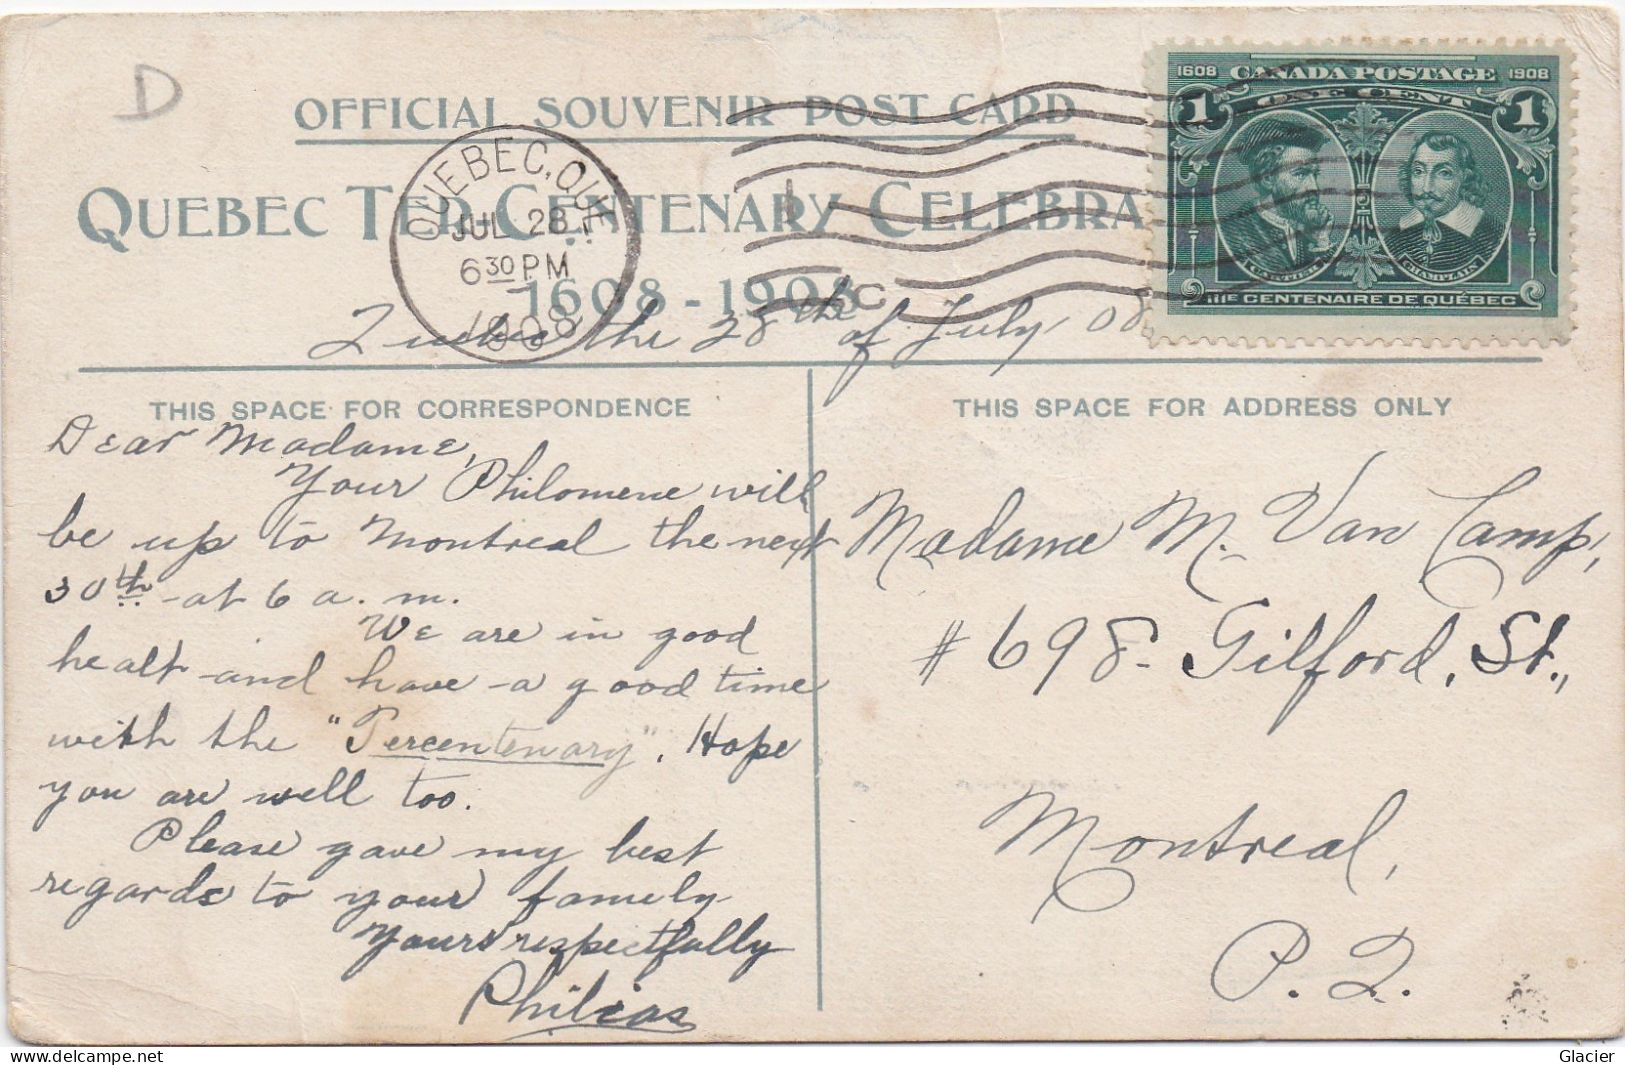 D
OFFICIAL SOUVENIR POST CARD
QUEBEC TER-CENTENARY CELEBRA
1608-1908
QUEBEC, QUE.
JUL 28
6 30 PM
1908
C
1608 CANADA POSTAGE 1908
1 ONE CENT 1
CARTIER CHAMPLAIN
IIIE CENTENAIRE DE QUÉBEC
Quebec the 28th of July, 08
THIS SPACE FOR CORRESPONDENCE
Dear Madame,
Your Philomene will
be up to Montreal the next
30th at 6 a.m.
We are in good
healt and have a good time
with the "Tercentenary". Hope
you are well too.
Please gave my best
regards to your famely
Yours respectfully
Philias
THIS SPACE FOR ADDRESS ONLY
Madame M. Van Camp,
# 698 Gilford, St.,
Montreal,
P. Q.
www.delcampe.net
Glacier